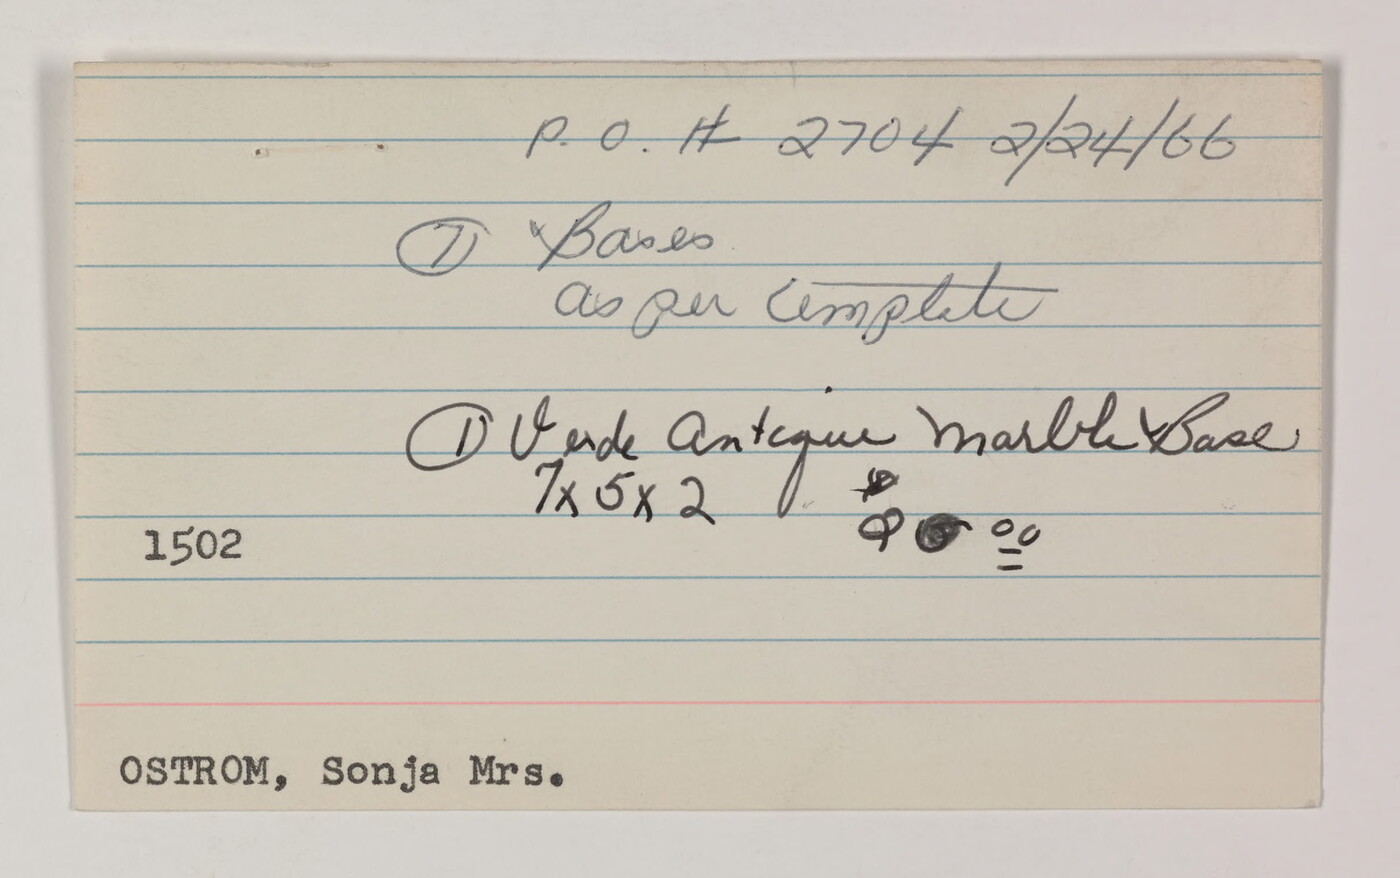 P.O. # 2704 2/24/66
⑦ Bases
as per template
① Verde Antique Marble Base
7x5x2
00
1502
OSTROM, Sonja Mrs.